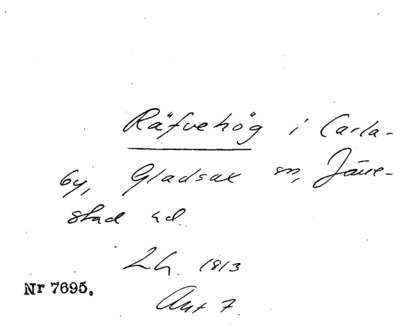 Räfvehög i Carla-
by, Gladsax sn, Järre-
stad hd.
Lh. 1813
Akt 7.
Nr 7695.